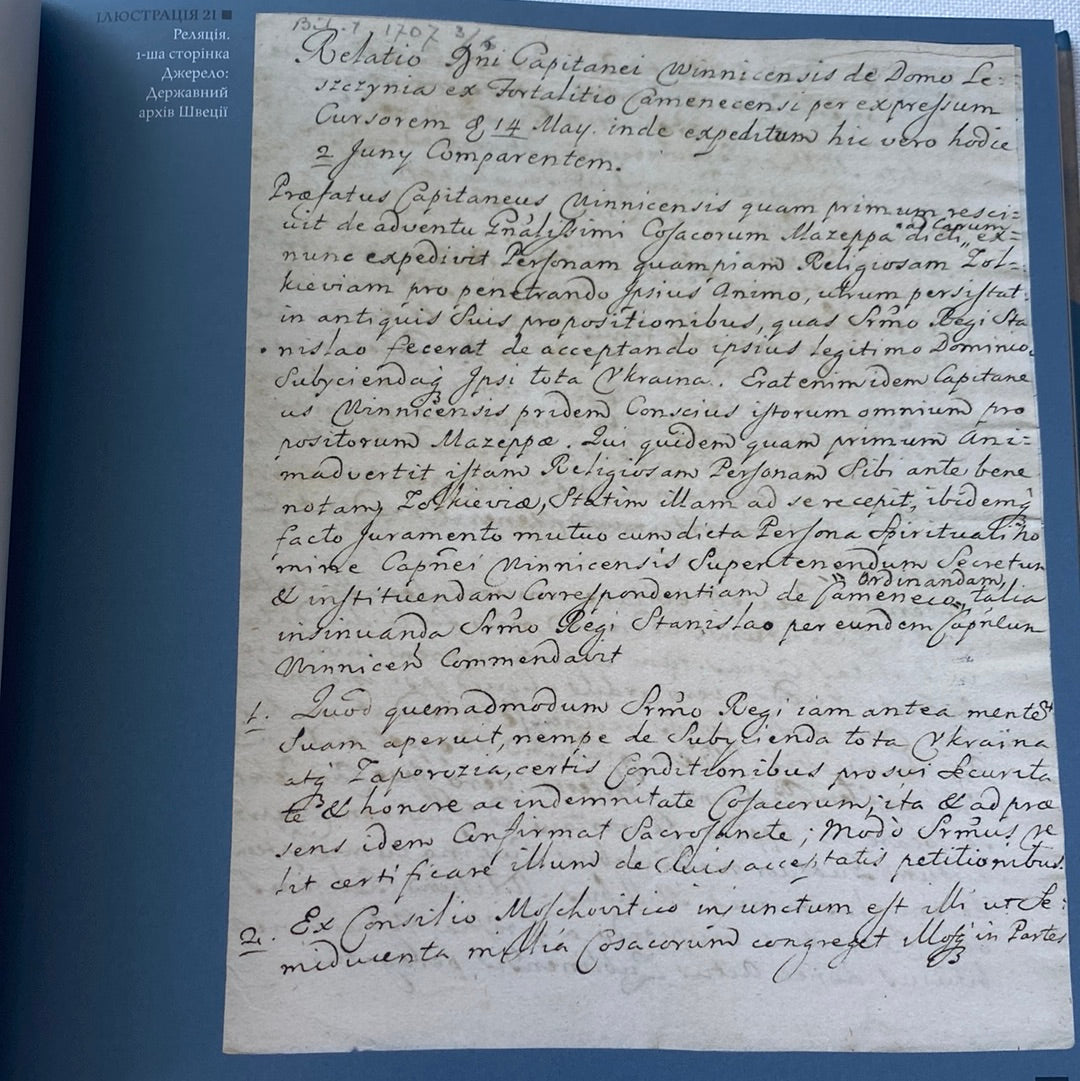 ІЛЮСТРАЦІЯ 21
Реляція.
1-ша сторінка
Джерело:
Державний
архів Швеції
1707 3/6
Relatio Dni Capitanei Winnicensis de Domo Le=
szczynia ex Fortalitio Camenecensi per expressum
Cursorem 14 May. inde expeditum hic vero hodie
2 Juny Comparentem.
Præfatus Capitaneus Winnicensis quam primum resci=
uit de adventu Gnãlissimi Cosacorum Mazeppa dicti ad Capum ex=
nunc expedivit Personam quampiam Religiosam Zol=
kieviam pro penetrando Ipsius Animo, utrum persistat
in antiquis Suis propositionibus, quas Srm̃o Regi Sta
nislao fecerat de acceptando ipsius legitimo Dominio,
Subyciendaq Ipsi tota Vkraina. Erat enim idem Capitane
us Winnicensis pridem Conscius istorum omnium pro
positorum Mazeppæ. Qui quidem quam primum Ani=
madvertit istam Religiosam Personam Sibi ante bene
notam, Zolkieviæ, Statim illam ad se recepit, ibidemq
facto Juramento mutuo cum dicta Persona Spirituali no
mine Capñei Winnicensis Super tenendum Secretum
& instituendam Correspondentiam de Cameneco, Ordinandam, talia
insinuanda Srm̃o Regi Stanislao per eundem
Winnicen Commendavit
1. Quod quemadmodum Srm̃o Regi iam antea mentem
Suam aperuit, nempe de Subycienda tota Vkraina
atq Zaporozia, certis Conditionibus pro sui Securita
te & honore ac indemnitate Cosacorum; ita & ad præ
sens idem Confirmat Sacrosancte; Modò Srm̃us ve
lit certificare illum de Suis acceptatis petitionibus.
2. Ex Consilio Moschovitico iniunctum est illi ut Se=
miducenta millia Cosacorum congreget illosq in Partes